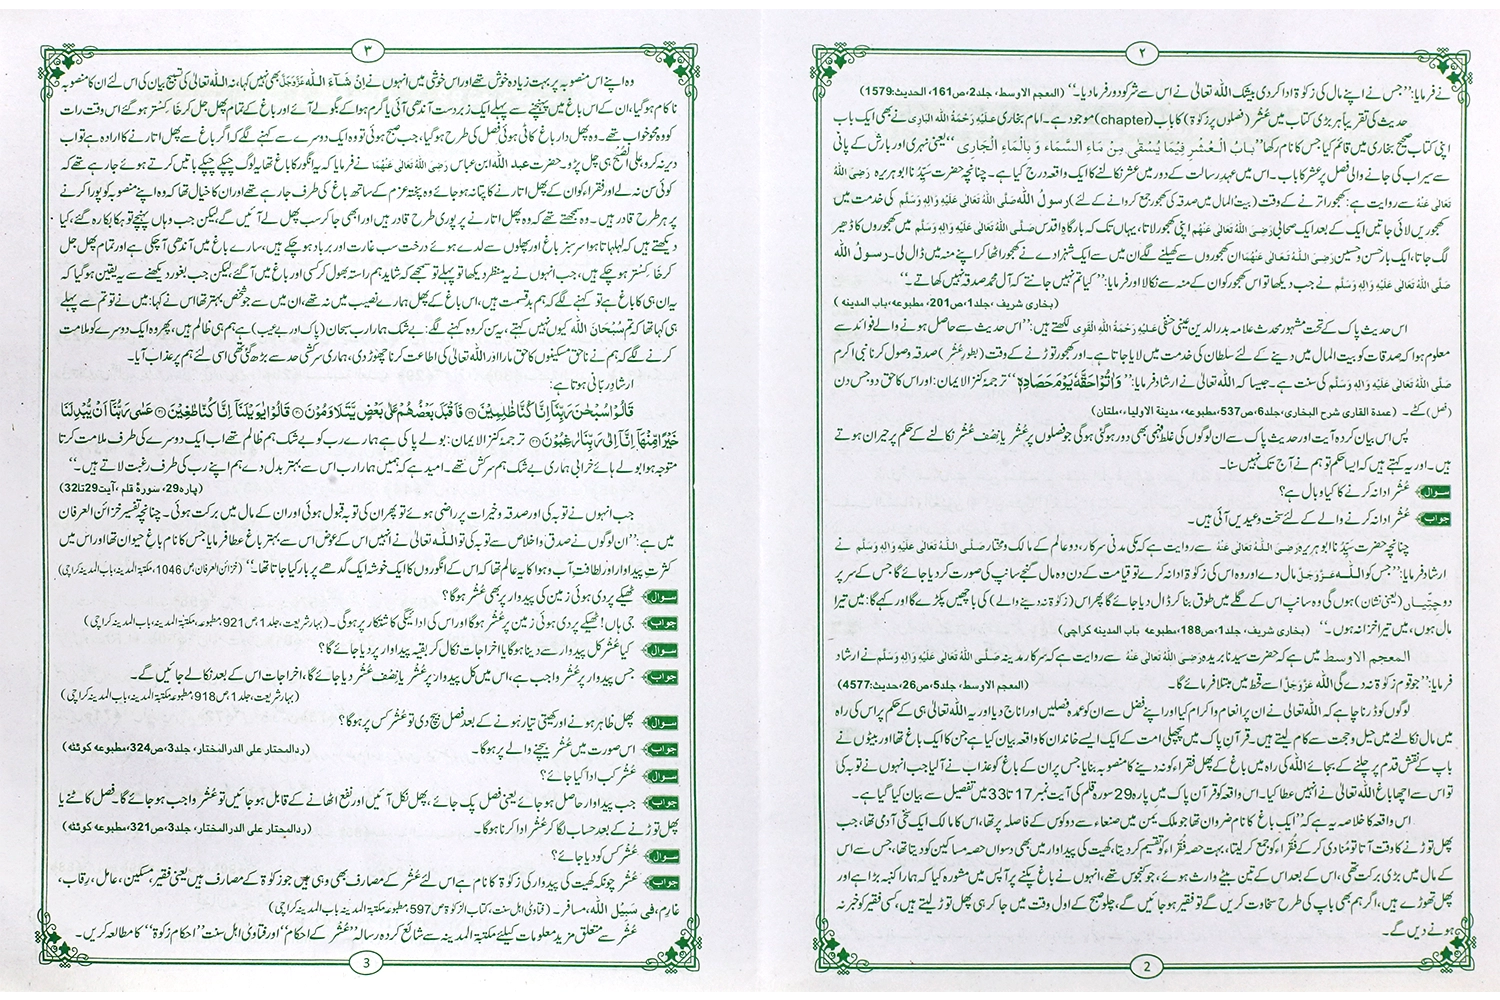 ۲
نے فرمایا: ’’جس نے اپنے مال کی زکوٰۃ ادا کردی بیشک اللہ تعالیٰ نے اس سے شر کو دور فرما دیا۔‘‘ (المعجم الاوسط، جلد2، ص161، الحدیث:1579)
حدیث کی تقریباً ہر بڑی کتاب میں عُشر (فصلوں پر زکوٰۃ) کا باب (chapter) موجود ہے۔ امام بخاری عَلَیْہِ رَحْمَۃُ اللہِ الْبَارِی نے بھی ایک باب
اپنی کتاب صحیح بخاری میں قائم کیا جس کا نام رکھا ’’بَابُ الْعُشْرِ فِیْمَا یُسْقٰی مِنْ مَاءِ السَّمَاءِ وَ بِالْمَاءِ الْجَارِی‘‘ یعنی نہری اور بارش کے پانی
سے سیراب کی جانے والی فصل پر عشر کا باب۔ اس میں عہدِ رسالت کے دور میں عشر نکالنے کا ایک واقعہ درج کیا ہے۔ چنانچہ حضرت سیّدُنا ابو ہریرہ رَضِیَ اللہُ
تَعَالٰی عَنْہُ سے روایت ہے: کھجور اترنے کے وقت (بیت المال میں صدقہ کی کھجور جمع کروانے کے لئے) رسولُ اللہ صَلَّی اللہُ تَعَالٰی عَلَیْہِ وَاٰلِہٖ وَسَلَّم کی خدمت میں
کھجوریں لائی جاتیں ایک کے بعد ایک صحابی رَضِیَ اللہُ تَعَالٰی عَنْہُم اپنی کھجور لاتا، یہاں تک کہ بارگاہِ اقدس صَلَّی اللہُ تَعَالٰی عَلَیْہِ وَاٰلِہٖ وَسَلَّم میں کھجوروں کا ڈھیر
لگ جاتا، ایک بار حسن و حسین رَضِیَ اللہُ تَعَالٰی عَنْہُمَا ان کھجوروں سے کھیلنے لگے ان میں سے ایک شہزادے نے کھجور اٹھا کر اپنے منہ میں ڈال لی۔ رسولُ اللہ
صَلَّی اللہُ تَعَالٰی عَلَیْہِ وَاٰلِہٖ وَسَلَّم نے جب دیکھا تو اس کھجور کو ان کے منہ سے نکالا اور فرمایا: ’’کیا تم نہیں جانتے کہ آل محمد صدقہ نہیں کھاتے۔‘‘
(بخاری شریف ،جلد1،ص201، مطبوعہ،باب المدینہ )
اس حدیث پاک کے تحت مشہور محدث علامہ بدر الدین عینی حنفی عَلَیْہِ رَحْمَۃُ اللہِ الْقَوِی لکھتے ہیں: ’’اس حدیث سے حاصل ہونے والے فوائد سے
معلوم ہوا کہ صدقات کو بیت المال میں دینے کے لئے سلطان کی خدمت میں لایا جاتا ہے۔ اور کھجور توڑنے کے وقت (بطورِ عُشر) صدقہ وصول کرنا نبی اکرم
صَلَّی اللہُ تَعَالٰی عَلَیْہِ وَاٰلِہٖ وَسَلَّم کی سنت ہے۔ جیسا کہ اللہ تعالیٰ نے ارشاد فرمایا: ’’وَاٰتُوْا حَقَّهٗ یَوْمَ حَصَادِهٖ‘‘ ترجمہ کنز الایمان: اور اس کا حق دو جس دن
(فصل) کٹے۔ (عمدۃ القاری شرح البخاری،جلد6،ص537،مطبوعہ، مدینۃ الاولیاء،ملتان)
پس اس بیان کردہ آیت اور حدیث پاک سے ان لوگوں کی غلط فہمی بھی دور ہوگئی ہوگی جو فصلوں پر عُشر یا نصف عُشر نکالنے کے حکم پر حیران ہوتے
ہیں۔ اور یہ کہتے ہیں کہ ایسا حکم تو ہم نے آج تک نہیں سنا۔
سوال عُشر ادا نہ کرنے کا کیا وبال ہے؟
جواب عُشر ادا نہ کرنے والے کے لئے سخت وعیدیں آئی ہیں۔
چنانچہ حضرت سیّدُنا ابو ہریرہ رَضِیَ اللہُ تَعَالٰی عَنْہُ سے روایت ہے کہ مکی مدنی سرکار، دو عالم کے مالک و مختار صَلَّی اللہُ تَعَالٰی عَلَیْہِ وَاٰلِہٖ وَسَلَّم نے
ارشاد فرمایا: ’’جس کو اللہ عَزَّوَجَلَّ مال دے اور وہ اس کی زکوٰۃ ادا نہ کرے تو قیامت کے دن وہ مال گنجے سانپ کی صورت کر دیا جائے گا جس کے سر پر
دو چِتّیاں (یعنی نشان) ہوں گی وہ سانپ اس کے گلے میں طوق بنا کر ڈال دیا جائے گا پھر اس (زکوٰۃ نہ دینے والے) کی باچھیں پکڑے گا اور کہے گا: میں تیرا
مال ہوں، میں تیرا خزانہ ہوں۔‘‘ (بخاری شریف، جلد1،ص188،مطبوعہ باب المدینہ کراچی)
المعجم الاوسط میں ہے کہ حضرت سیدنا بریدہ رَضِیَ اللہُ تَعَالٰی عَنْہُ سے روایت ہے کہ سرکارِ مدینہ صَلَّی اللہُ تَعَالٰی عَلَیْہِ وَاٰلِہٖ وَسَلَّم نے ارشاد
فرمایا: ’’جو قوم زکوٰۃ نہ دے گی اللہ عَزَّوَجَلَّ اسے قحط میں مبتلا فرمائے گا۔ (المعجم الاوسط، جلد5،ص26،حدیث:4577)
لوگوں کو ڈرنا چاہئے کہ اللہ تعالیٰ نے ان پر انعام و اکرام کیا اور اپنے فضل سے ان کو عمدہ فصلیں اور اناج دیا اور یہ اللہ تعالیٰ ہی کے حکم پر اس کی راہ
میں مال نکالنے میں حیل و حجت سے کام لیتے ہیں۔ قرآنِ پاک میں پچھلی امت کے ایک ایسے خاندان کا واقعہ بیان کیا ہے جن کا ایک باغ تھا اور بیٹوں نے
باپ کے نقشِ قدم پر چلنے کے بجائے اللہ کی راہ میں باغ کے پھل فقراء کو نہ دینے کا منصوبہ بنایا جس پر ان کے باغ کو عذاب نے آلیا جب انہوں نے توبہ کی
تو اس سے اچھا باغ اللہ تعالیٰ نے انہیں عطا کیا۔ اس واقعہ کو قرآن پاک میں پارہ 29 سورہ قلم کی آیت نمبر 17 تا 33 میں تفصیل سے بیان کیا گیا ہے۔
اس واقعہ کا خلاصہ یہ ہے کہ ’’ایک باغ کا نام ضروان تھا جو ملک یمن میں صنعاء سے دو کوس کے فاصلہ پر تھا، اس کا مالک ایک سخی آدمی تھا، جب
پھل توڑنے کا وقت آتا تو مُنادی کر کے فُقراء کو جمع کر لیتا، بہت حصہ فُقراء کو تقسیم کر دیتا، کھیت کی پیداوار میں بھی دسواں حصہ مساکین کو دیتا تھا، جس سے اس
کے مال میں بڑی برکت تھی، اس کے بعد اس کے تین بیٹے وارث ہوئے، جو کنجوس تھے، انہوں نے باغ پکنے پر آپس میں مشورہ کیا کہ ہمارا کنبہ بڑا ہے اور
پھل تھوڑے ہیں، اگر ہم بھی باپ کی طرح سخاوت کریں گے تو فقیر ہو جائیں گے، چلو صبح کے اول وقت میں جا کر ہی پھل توڑ لیتے ہیں، کسی فقیر کو خبر نہ
ہونے دیں گے۔
2
۳
وہ اپنے اس منصوبہ پر بہت زیادہ خوش تھے اور اس خوشی میں انہوں نے اِنْ شَآءَ اللہ عَزَّوَجَلَّ بھی نہیں کہا، نہ اللہ تعالیٰ کی تسبیح بیان کی اس لئے ان کا منصوبہ
ناکام ہوگیا، ان کے اس باغ میں پہنچنے سے پہلے ایک زبردست آندھی آئی یا گرم ہوا کے بگولے آئے اور باغ کے تمام پھل جل کر خاکستر ہو گئے اس وقت رات
کو وہ محوِ خواب تھے۔ وہ پھل دار باغ کاٹی ہوئی فصل کی طرح ہو گیا، جب صبح ہوئی تو وہ ایک دوسرے سے کہنے لگے کہ اگر باغ سے پھل اتارنے کا ارادہ ہے تو اب
دیر نہ کرو علی الصُّبح ہی چل پڑو۔ حضرت عبد اللہ ابن عباس رَضِیَ اللہُ تَعَالٰی عَنْہُمَا نے فرمایا کہ یہ انگور کا باغ تھا یہ لوگ چپکے چپکے باتیں کرتے ہوئے جا رہے تھے کہ
کوئی سن نہ لے اور فقراء کو ان کے پھل اتارنے کا پتا نہ ہو جائے وہ پختہ عزم کے ساتھ باغ کی طرف جا رہے تھے اور ان کا خیال تھا کہ وہ اپنے منصوبہ کو پورا کرنے
پر ہر طرح قادر ہیں۔ وہ سمجھتے تھے کہ وہ پھل اتارنے پر پوری طرح قادر ہیں اور ابھی جا کر سب پھل لے آئیں گے، لیکن جب وہاں پہنچے تو ہکا بکا رہ گئے، کیا
دیکھتے ہیں کہ لہلہاتا ہوا سرسبز باغ اور پھلوں سے لدے ہوئے درخت سب غارت اور برباد ہو چکے ہیں، سارے باغ میں آندھی آچکی ہے اور تمام پھل جل
کر خاکستر ہو چکے ہیں، جب انہوں نے یہ منظر دیکھا تو پہلے تو سمجھے کہ شاید ہم راستہ بھول کر کسی اور باغ میں آ گئے، لیکن جب بغور دیکھنے سے یہ یقین ہو گیا کہ
یہ ان ہی کا باغ ہے تو کہنے لگے کہ ہم بد قسمت ہیں، اس باغ کے پھل ہمارے نصیب میں نہ تھے، ان میں سے جو شخص بہتر تھا اس نے کہا: میں نے تو تم سے پہلے
ہی کہا تھا کہ تم سُبْحَانَ اللہ کیوں نہیں کہتے، یہ سن کر وہ کہنے لگے: بے شک ہمارا رب سبحان (پاک اور بے عیب) ہے ہم ہی ظالم ہیں، پھر وہ ایک دوسرے کو ملامت
کرنے لگے کہ ہم نے ناحق مسکینوں کا حق مارا اور اللہ تعالیٰ کی اطاعت کرنا چھوڑ دی، ہماری سرکشی حد سے بڑھ گئی تھی اسی لئے ہم پر عذاب آیا۔
ارشادِ ربّانی ہوتا ہے:
قَالُوْا سُبْحٰنَ رَبِّنَاۤ اِنَّا كُنَّا ظٰلِمِیْنَ ۝۲۹ فَاَقْبَلَ بَعْضُهُمْ عَلٰى بَعْضٍ یَّتَلَاوَمُوْنَ ۝۳۰ قَالُوْا یٰوَیْلَنَاۤ اِنَّا كُنَّا طٰغِیْنَ ۝۳۱ عَسٰى رَبُّنَاۤ اَنْ یُّبْدِلَنَا
خَیْرًا مِّنْهَاۤ اِنَّاۤ اِلٰى رَبِّنَا رٰغِبُوْنَ ۝۳۲ ترجمہ کنز الایمان: بولے پاکی ہے ہمارے رب کو بے شک ہم ظالم تھے اب ایک دوسرے کی طرف ملامت کرتا
متوجہ ہوا بولے ہائے خرابی ہماری بے شک ہم سرکش تھے۔ امید ہے کہ ہمیں ہمارا رب اس سے بہتر بدل دے ہم اپنے رب کی طرف رغبت لاتے ہیں۔‘‘
(پارہ29، سورۃ قلم ،آیت29تا32)
جب انہوں نے توبہ کی اور صدقہ و خیرات پر راضی ہوئے تو پھر ان کی توبہ قبول ہوئی اور ان کے مال میں برکت ہوئی۔ چنانچہ تفسیر خزائن العرفان
میں ہے: ’’ان لوگوں نے صدق و اخلاص سے توبہ کی تو اللہ تعالیٰ نے انہیں اس کے عوض اس سے بہتر باغ عطا فرمایا جس کا نام باغِ حیوان تھا اور اس میں
کثرتِ پیداوار اور لطافتِ آب و ہوا کا یہ عالم تھا کہ اس کے انگوروں کا ایک خوشہ ایک گدھے پر بار کیا جاتا تھا۔‘‘ (خزائن العرفان،ص1046،مکتبۃ المدینہ،باب المدینہ کراچی)
سوال ٹھیکے پر دی ہوئی زمین کی پیداوار پر بھی عُشر ہوگا؟
جواب جی ہاں! ٹھیکے پر دی ہوئی زمین پر عُشر ہوگا اور اس کی ادائیگی کاشتکار پر ہوگی۔ (بہار شریعت،جلد1،ص921،مطبوعہ،مکتبۃ المدینہ،باب المدینہ کراچی)
سوال کیا عُشر کل پیداوار سے دینا ہوگا یا اخراجات نکال کر بقیہ پیداوار پر دیا جائے گا؟
جواب جس پیداوار پر عُشر واجب ہے، اس میں کل پیداوار پر عُشر یا نصف عُشر دیا جائے گا، اخراجات اس کے بعد نکالے جائیں گے۔
(بہار شریعت،جلد1،ص918،مطبوعہ مکتبۃ المدینہ،باب المدینہ کراچی)
سوال پھل ظاہر ہونے اور کھیتی تیار ہونے کے بعد فصل بیچ دی تو عُشر کس پر ہوگا؟
جواب اس صورت میں عُشر بیچنے والے پر ہوگا۔ (ردالمحتار علی الدر المختار، جلد3،ص324،مطبوعہ کوئٹہ)
سوال عُشر کب ادا کیا جائے؟
جواب جب پیداوار حاصل ہو جائے یعنی فصل پک جائے، پھل نکل آئیں اور نفع اٹھانے کے قابل ہو جائیں تو عُشر واجب ہو جائے گا۔ فصل کاٹنے یا
پھل توڑنے کے بعد حساب لگا کر عُشر ادا کرنا ہوگا۔ (ردالمحتار علی الدر المختار، جلد3،ص321،مطبوعہ کوئٹہ)
سوال عُشر کس کو دیا جائے؟
جواب عُشر چونکہ کھیت کی پیداوار کی زکوٰۃ کا نام ہے اس لئے عُشر کے مصارف بھی وہی ہیں جو زکوٰۃ کے مصارف ہیں یعنی فقیر، مسکین، عامل، رِقاب،
غارِم، فی سَبِیْلِ اللہ، مسافر۔ (فتاویٰ اہل سنت، کتاب الزکوٰۃ ص597، مطبوعہ مکتبۃ المدینہ باب المدینہ کراچی)
عُشر سے متعلق مزید معلومات کیلئے مکتبۃ المدینہ سے شائع کردہ رسالہ ’’عُشر کے احکام‘‘ اور فتاویٰ اہل سنت ’’احکامِ زکوٰۃ‘‘ کا مطالعہ کریں۔
3